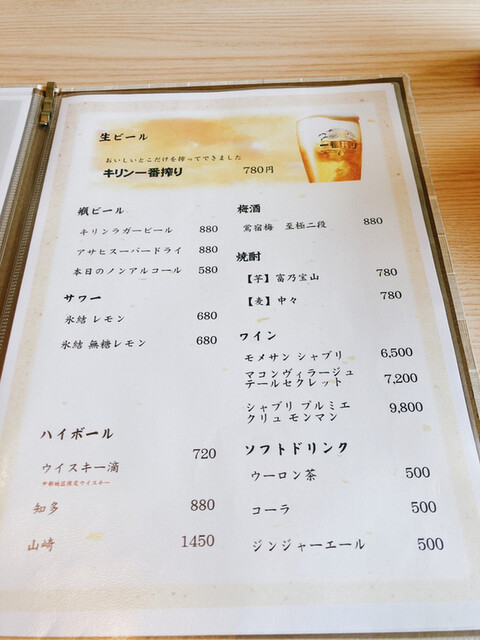 生ビール
おいしいとこだけを搾ってできました
キリン一番搾り 780円
一番搾り
瓶ビール
キリンラガービール 880
アサヒスーパードライ 880
本日のノンアルコール 580
サワー
氷結 レモン 680
氷結 無糖レモン 680
ハイボール
ウイスキー滴 720
中部地区限定ウイスキー
知多 880
山崎 1450
梅酒
鴬宿梅 至極二段 880
焼酎
【芋】富乃宝山 780
【麦】中々 780
ワイン
モメサン シャブリ 6,500
マコンヴィラージュ
テールセクレット 7,200
シャブリ プルミエ
クリュ モンマン 9,800
ソフトドリンク
ウーロン茶 500
コーラ 500
ジンジャーエール 500